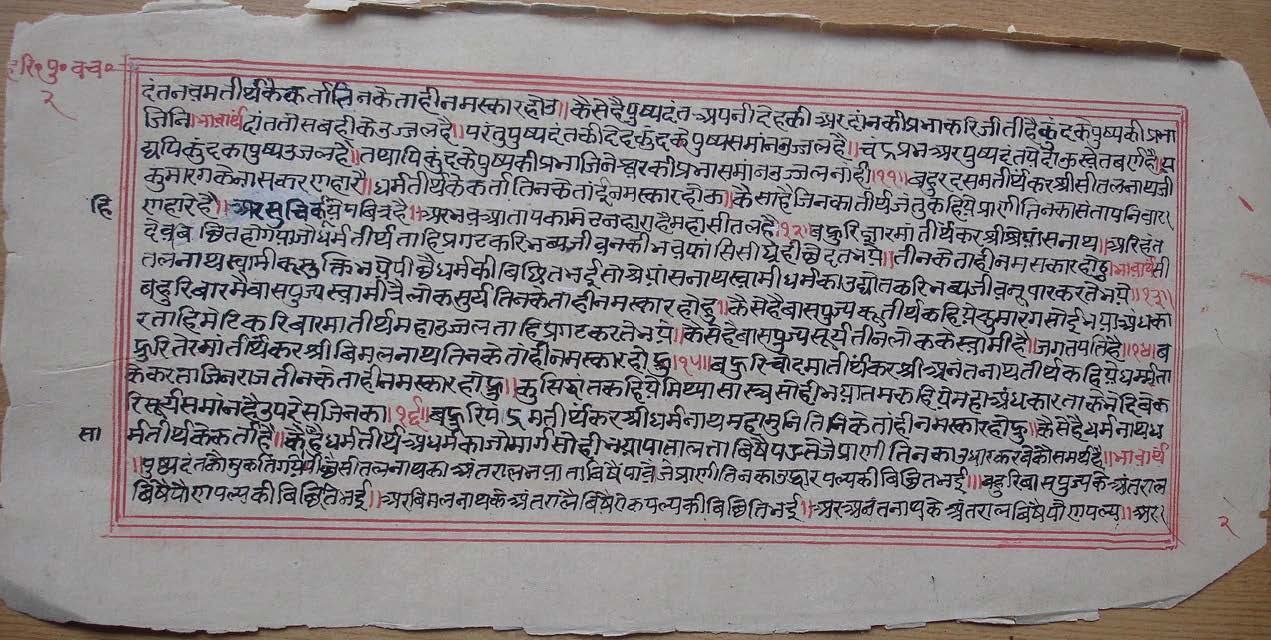 हरि॰ पु॰ वच॰
२
दंतनवमतीर्थकैकर्तातिनकेताहीनमस्कारहोउ॥कैसेहैपुष्पदंतअपनीदेहकीअरदांनकीप्रभाकरिजीतीहैकुंदकेपुष्पकीप्रभा
जिनि॥भावार्थदांततोसबहीकेउज्जलहै॥परंतुपुष्पदंतकीदेहकुंदकेपुष्पसमांनउज्जलहै॥चंद्रप्रभअरपुष्पदंतयेदोऊस्वेतवर्णहै॥य
द्यपिकुंदकापुष्पउजलहै॥तथापिकुंदकेपुष्पकीप्रभाजिनेश्वरकीप्रभासमांनउज्जलनाही॥११॥बहुरदसमतीर्थंकरश्रीसीतलनाथजी
कुमारगकेनासकरणहारे॥धर्मतीर्थकेकर्तातिनकेताईनमस्कारहोऊ॥कैसाहैजिनकातीर्थजेतुकहियेप्राणीतिनकासंतापनिवार
हि
णहारहै॥अरसुचिकहियेपवित्रहै॥अरभवआतापकामेटनहाराहैमहासीतलहै॥१२॥बहुरिग्यारमांतीर्थंकरश्रीश्रेयांसनाथ॥अरिहंत
तीनकेताहीनमसकारहोहु॥भावार्थसी
तलनाथस्वामीकूमुक्तिभयेपीछैधर्मकीबिछितभईसोश्रेयांसनाथस्वामीधर्मकाउद्योतकरिभव्यजीवनूपारकरतेभये॥१३॥
बहुरिबारमेवासपुज्यस्वामीत्रैलोकसुर्यतिनकेताहीनमस्कारहोहु॥कैसेहैबासपुज्यकुतीर्थकहियेकुमारगसोईभयाअंधका
रताहिमेटिकरिबारमातीर्थमहाउज्जलताहिप्रगटकरतेभये॥कैसेहैबासपुज्यसूर्यतीनलोककेस्वामीहै॥जगतपतिहै॥१४॥ब
हुरितेरमांतीर्थंकरश्रीबिमलनाथतिनकेतांहीनमस्कारहोहु॥१५॥बहुरिचौदमातीर्थंकरश्रीअनंतनाथतीर्थकहियेधर्मता
केकरताजिनराजतीनकेताहीनमस्कारहोहु॥कुसिद्धांतकहियेमिथ्यासास्त्रसोहीभयातमकहियेमहाअंधकारताकेभेदिवेक
रिसूर्यसमांनहैउपदेसजिनका॥१६॥बहुरिपंद्रमतीर्थंकरश्रीधर्मनाथमहामुनितिनिकेतांहीनमस्कारहोहु॥कैसेहैधर्मनाथध
सा
र्मतीर्थकेकर्ताहै॥
भावार्थ
॥पुष्पदंतकौमुकतिगयेपीछैसीतलनाथकाअंतरालनपाताविषै
पल्यकीबिछितिभई॥बहुरिबासपुज्यकेअंतराल
बिषैपौणपल्यकीबिछितिभई॥अरबिमलनाथकेअंतरालैबिषैएकपल्यकीबिछितिभई॥अरअनंतनाथकेअंतरालबिषैपौणपल्य॥अर
२